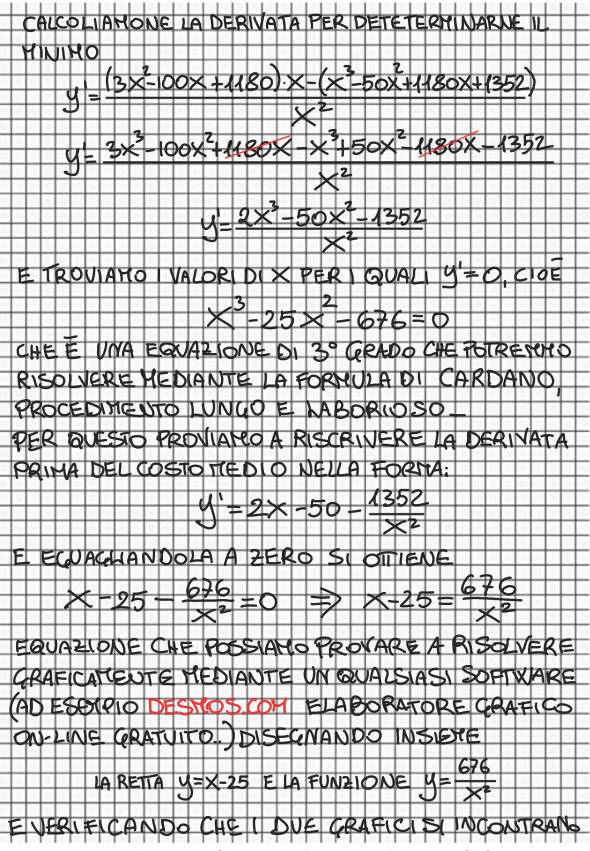 CALCOLIAMONE LA DERIVATA PER DETETERMINARNE IL
MINIMO
y'=((3x²-100x+1180)·x-(x³-50x²+1180x+1352))/x²
y'=(3x³-100x²+1180x-x³+50x²-1180x-1352)/x²
y'=(2x³-50x²-1352)/x²
E TROVIAMO I VALORI DI X PER I QUALI y'=0, CIOĒ
x³-25x²-676=0
CHE Ē UNA EQUAZIONE DI 3° GRADO CHE POTREMMO
RISOLVERE MEDIANTE LA FORMULA DI CARDANO,
PROCEDIMENTO LUNGO E LABORIOSO_
PER QUESTO PROVIAMO A RISCRIVERE LA DERIVATA
PRIMA DEL COSTO MEDIO NELLA FORMA:
y'=2x-50-1352/x²
E EGUAGLIANDOLA A ZERO SI OTTIENE
x-25-676/x²=0 ⇒ x-25=676/x²
EQUAZIONE CHE POSSIAMO PROVARE A RISOLVERE
GRAFICAMENTE MEDIANTE UN QUALSIASI SOFTWARE
(AD ESEMPIO DESMOS.COM ELABORATORE GRAFICO
ON-LINE GRATUITO..) DISEGNANDO INSIEME
LA RETTA y=x-25 E LA FUNZIONE y=676/x²
E VERIFICANDO CHE I DUE GRAFICI SI INCONTRANO